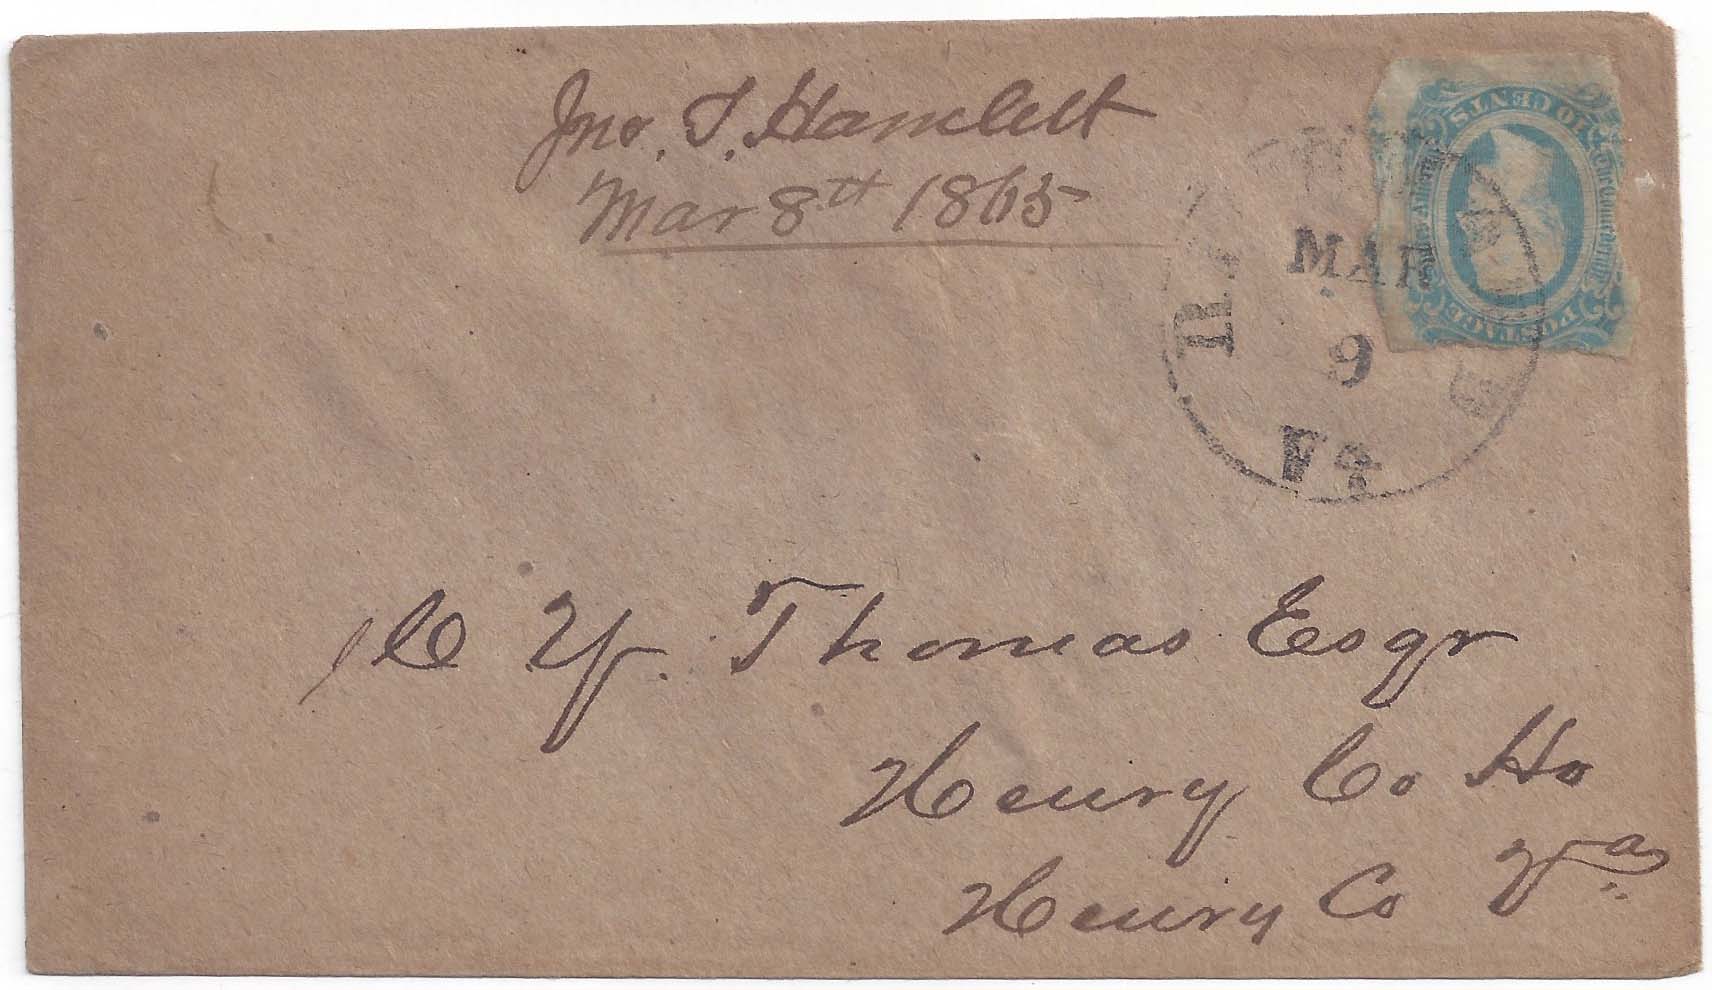 Jno. T. Hamlett
Mar 8th 1865
10 CENTS
The Confederate
POSTAGE
MAR
9
Va
C Y. Thomas Esqr
Henry Co Ho
Henry Co Va